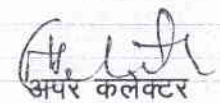 अपर कलेक्टर